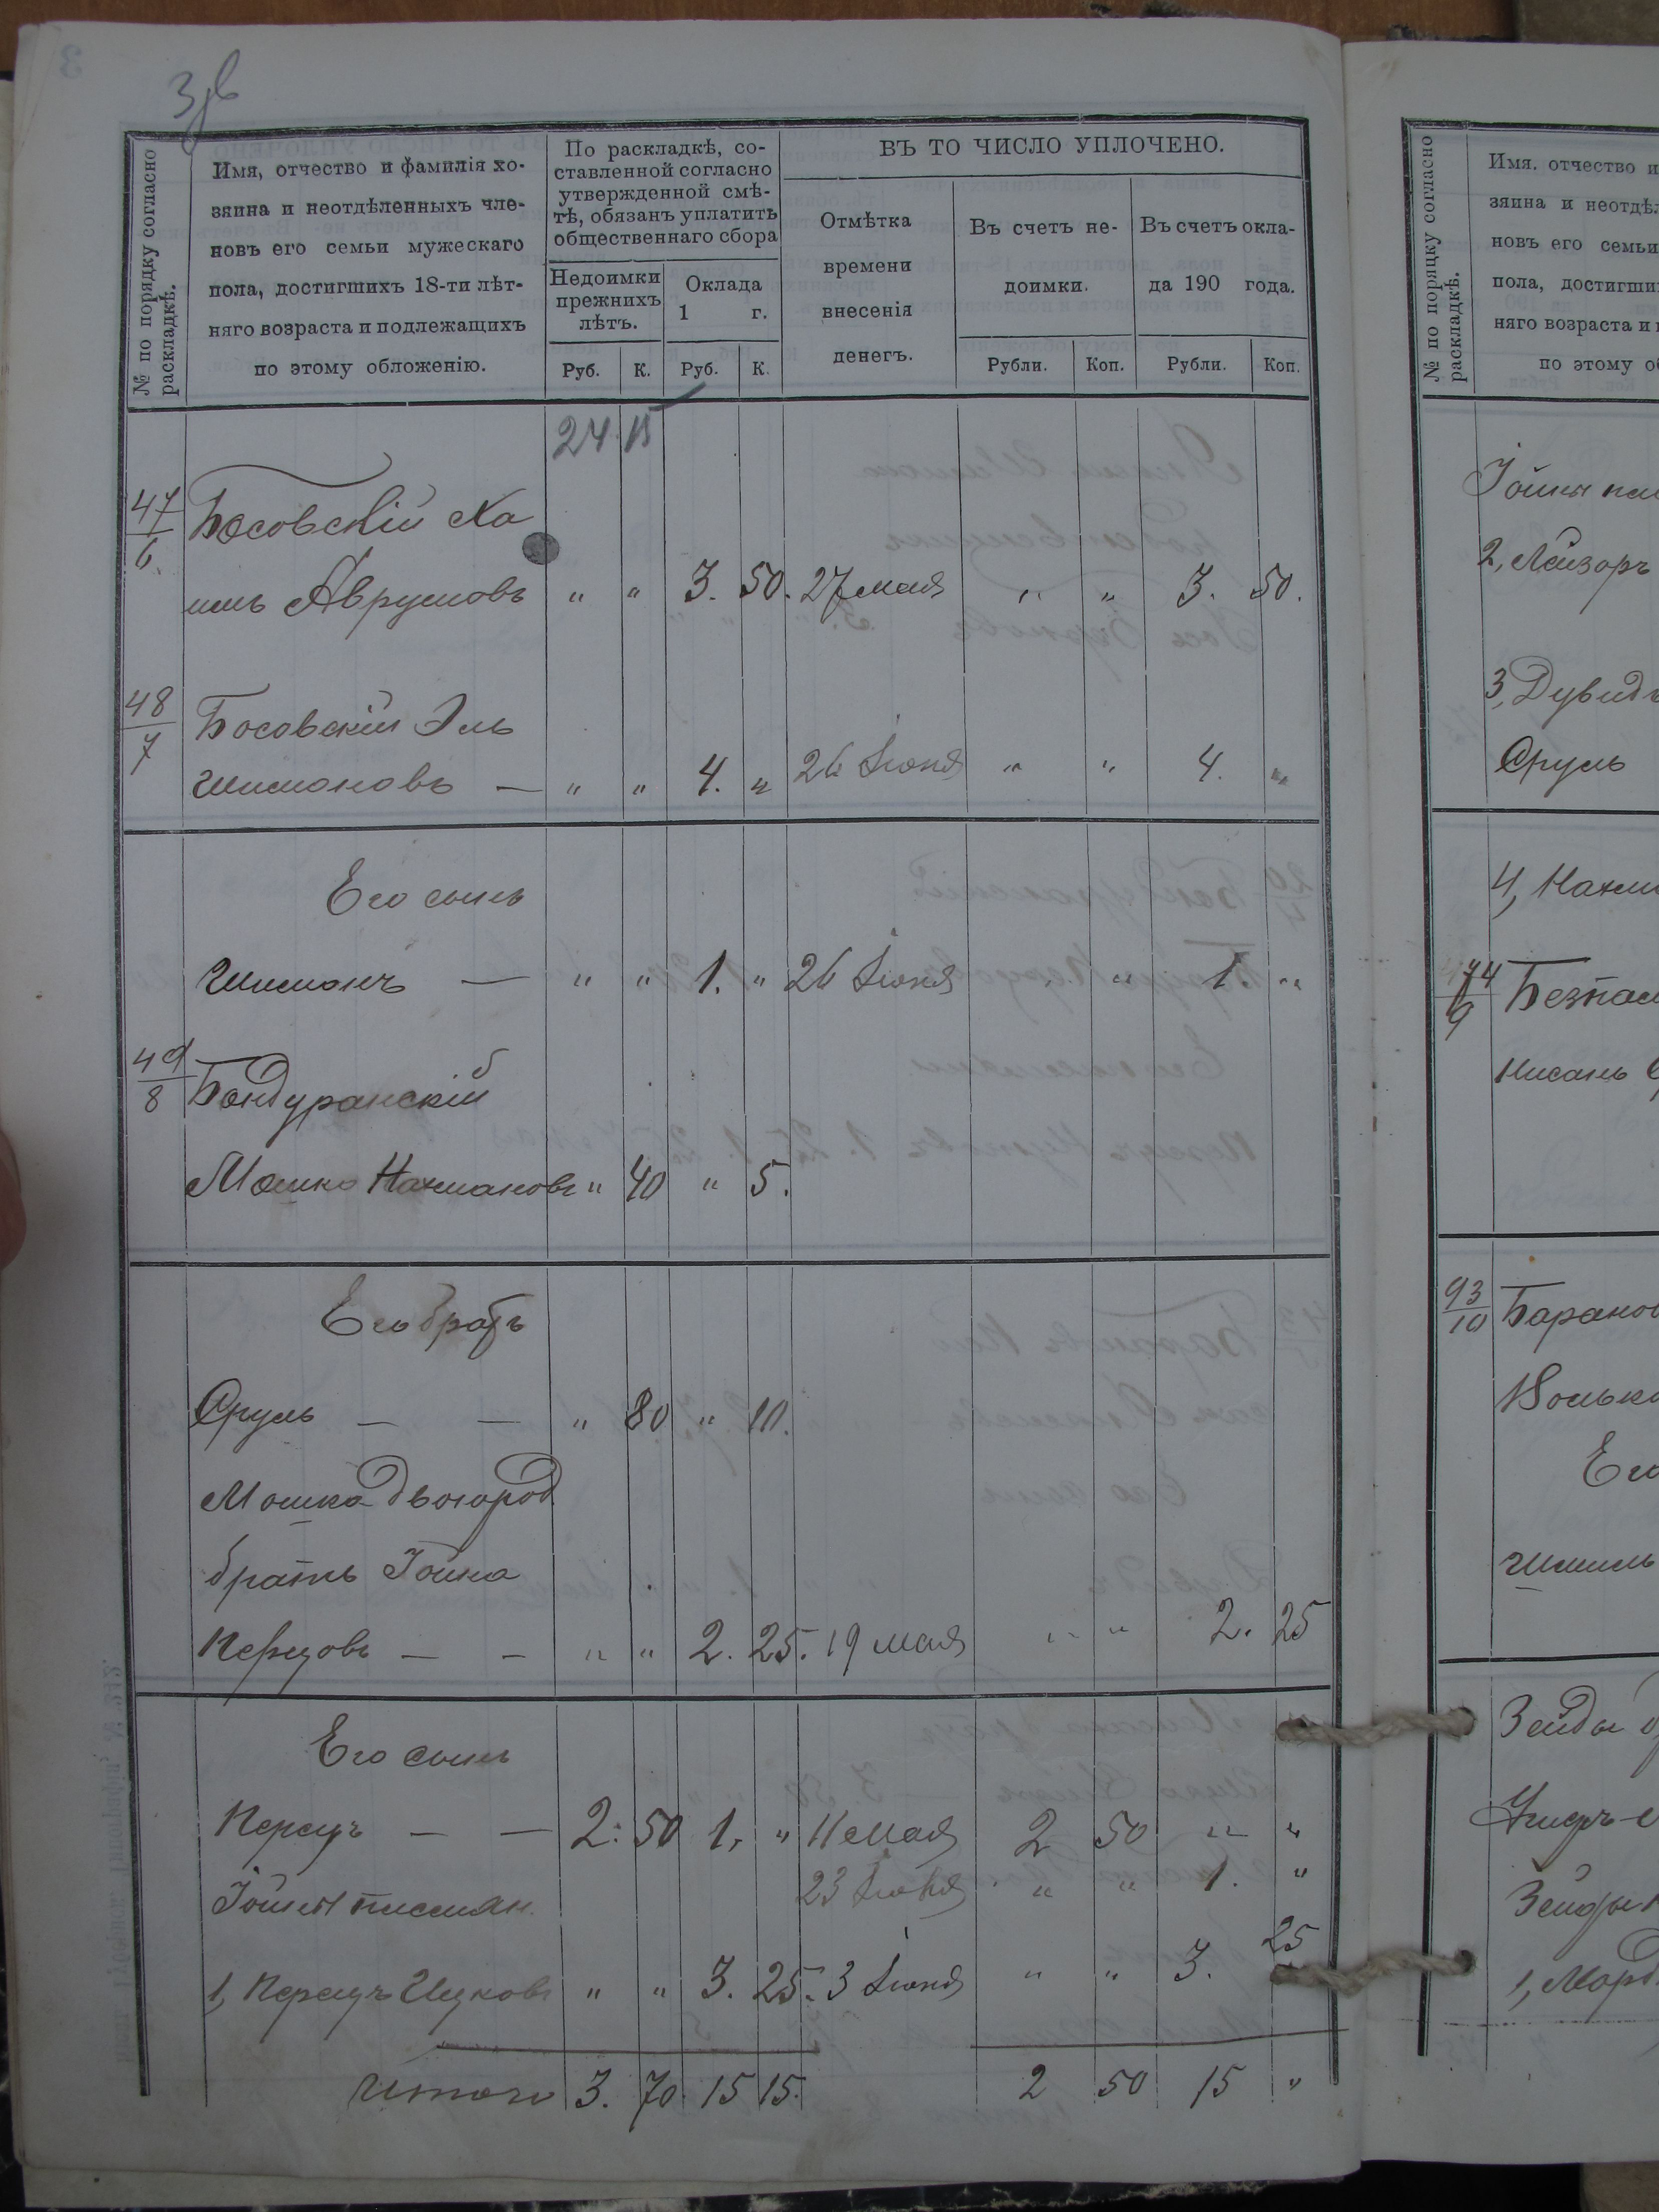 3
№ по порядку согласно раскладкѣ.
Имя, отчество и фамилія хо-
зяина и неотдѣленныхъ чле-
новъ его семьи мужескаго
пола, достигшихъ 18-ти лѣт-
няго возраста и подлежащихъ
по этому обложенію.
По раскладкѣ, со-
ставленной согласно
утвержденной смѣ-
тѣ, обязанъ уплатить
общественнаго сбора
Недоимки
прежнихъ
лѣтъ.
Оклада
1 г.
Руб. К. Руб. К.
ВЪ ТО ЧИСЛО УПЛОЧЕНО.
Отмѣтка
времени
внесенія
денегъ.
Въ счетъ не-
доимки.
Въ счетъ окла-
да 190 года.
Рубли. Коп. Рубли. Коп.
24 15
47/6 Босовскій Ха
имъ Аврумовъ " " 3. 50. 27 мая " " 3. 50.
48/7 Босовскій Эль
Шимоновъ — " " 4. " 26 Іюня " " 4. "
Его сынъ
Шимонъ — " " 1. " 26 Іюня " " 1. "
49/8 Бондуранскій
Мошко Нахмановъ " 40 " 5.
Его братъ
Сруль — — " 80 " 10.
Мошка двоюрод.
братъ Іойна
Перцовъ — — " " 2. 25. 19 мая " " 2. 25
Его сынъ
Перецъ — — 2. 50 1. " 11 мая 2 50 " "
23 Іюня " " 1. "
Іойны племян.
1, Перецъ Ицковъ " " 3. 25. 3 Іюня " " 3. 25
Итого 3. 70 15 15. 2 50 15 "
№ по порядку согласно раскладкѣ.
Имя. отчество и
зяина и неотдѣл
новъ его семьи
пола, достигши
няго возраста и
по этому об
Іойны
2, Лейзоръ
3, Дувидъ
Сруль
4,
74/9
93/10
Его
1,